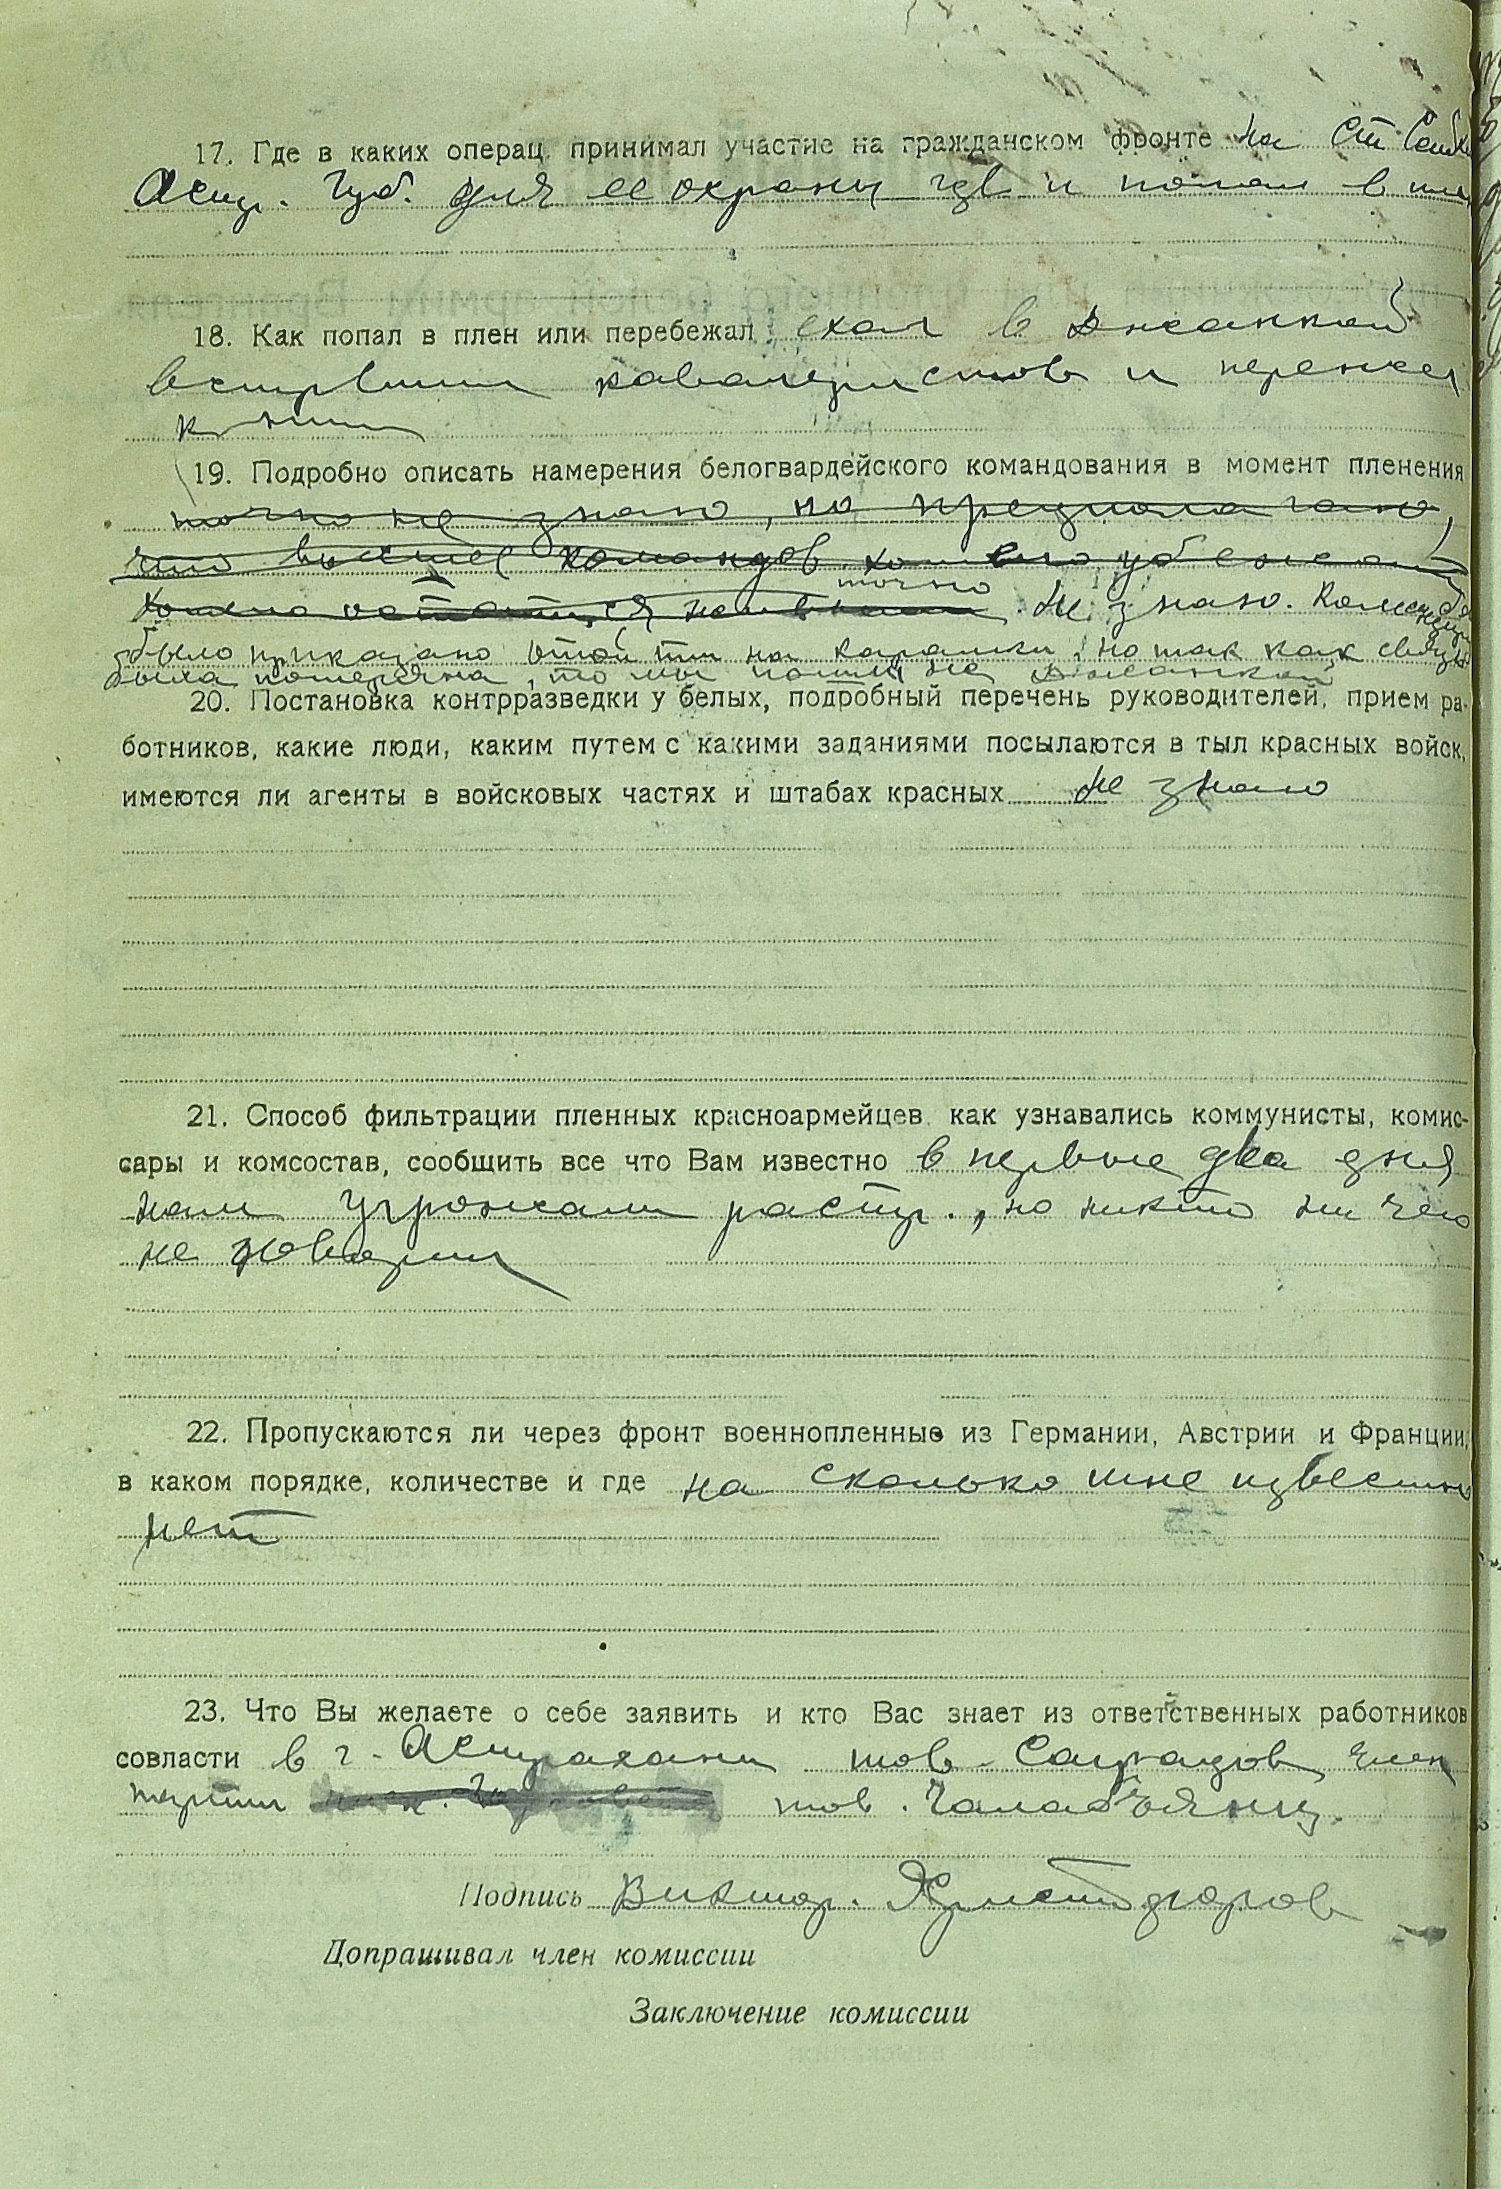 17. Где в каких операц. принимал участие на гражданском фронте на ст
Астр. Губ. для ее охраны где и попал в
18. Как попал в плен или перебежал ехал в Джанкой
встретил кавалеристов и перешел
к ним
19. Подробно описать намерения белогвардейского командования в момент пленения
точно не знаю, но предполагаю,
что высшее командов. хотело убежать
точно
не знаю.
было приказано отойти на, но так как связь
была потеряна, то мы пошли на Джанкой
20. Постановка контрразведки у белых, подробный перечень руководителей, прием ра-
ботников, какие люди, каким путем с какими заданиями посылаются в тыл красных войск,
имеются ли агенты в войсковых частях и штабах красных не знаю
21. Способ фильтрации пленных красноармейцев, как узнавались коммунисты, комис-
сары и комсостав, сообщить все что Вам известно в первые два дня
нам угрожали растр., но никто ни чего
не говорил
22. Пропускаются ли через фронт военнопленные из Германии, Австрии и Франции,
в каком порядке, количестве и где на сколько мне известно
нет
23. Что Вы желаете о себе заявить и кто Вас знает из ответственных работников
совласти в г. Астрахани тов. член
партии тов.
Подпись Виктор. Христофоров
Допрашивал член комиссии
Заключение комиссии